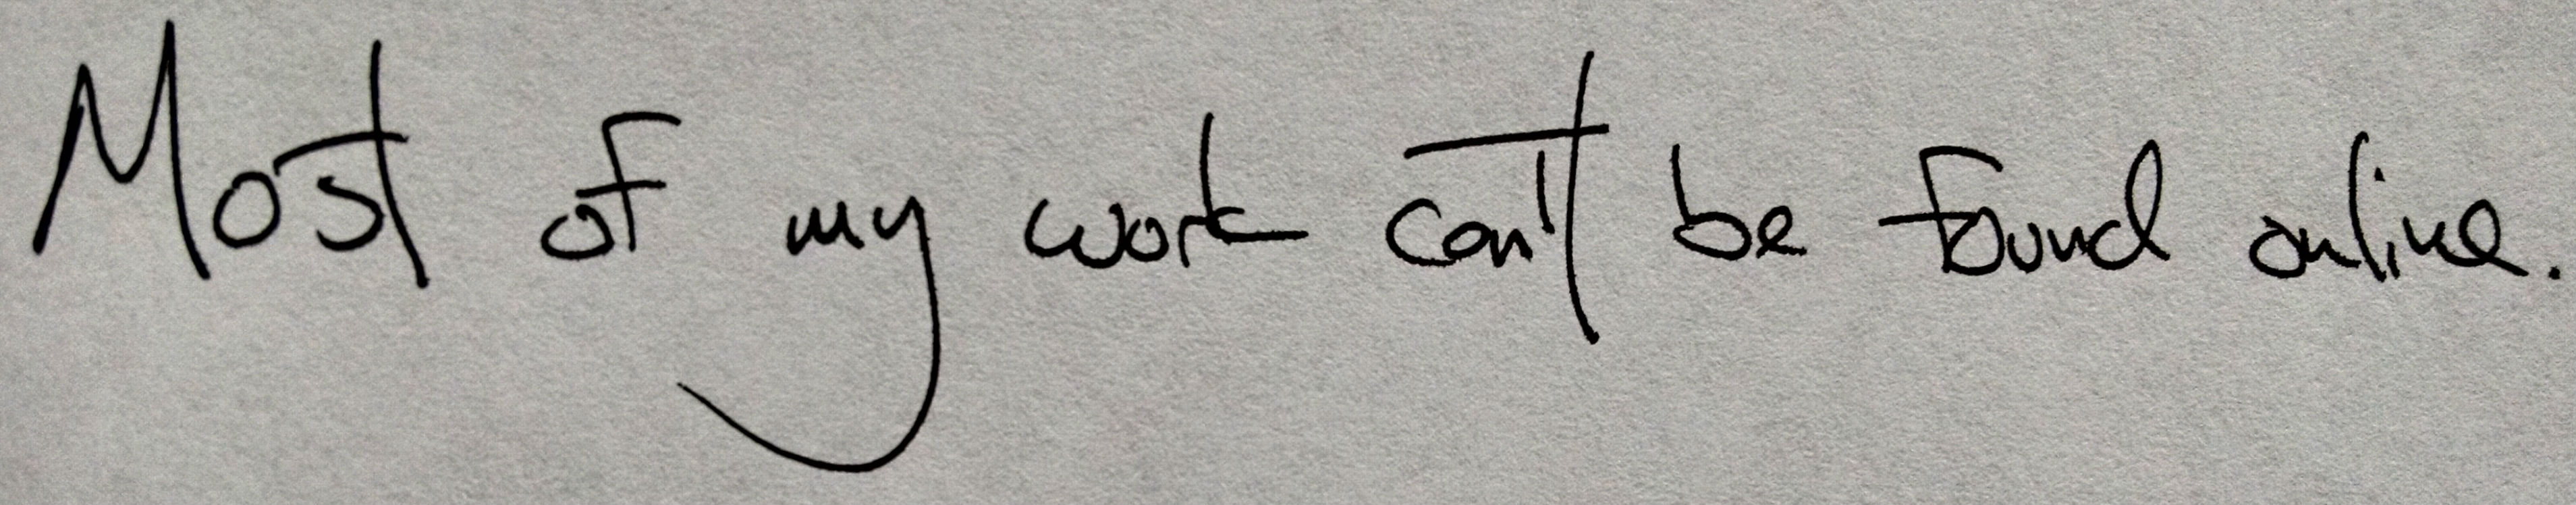 Most of my work can't be found online.